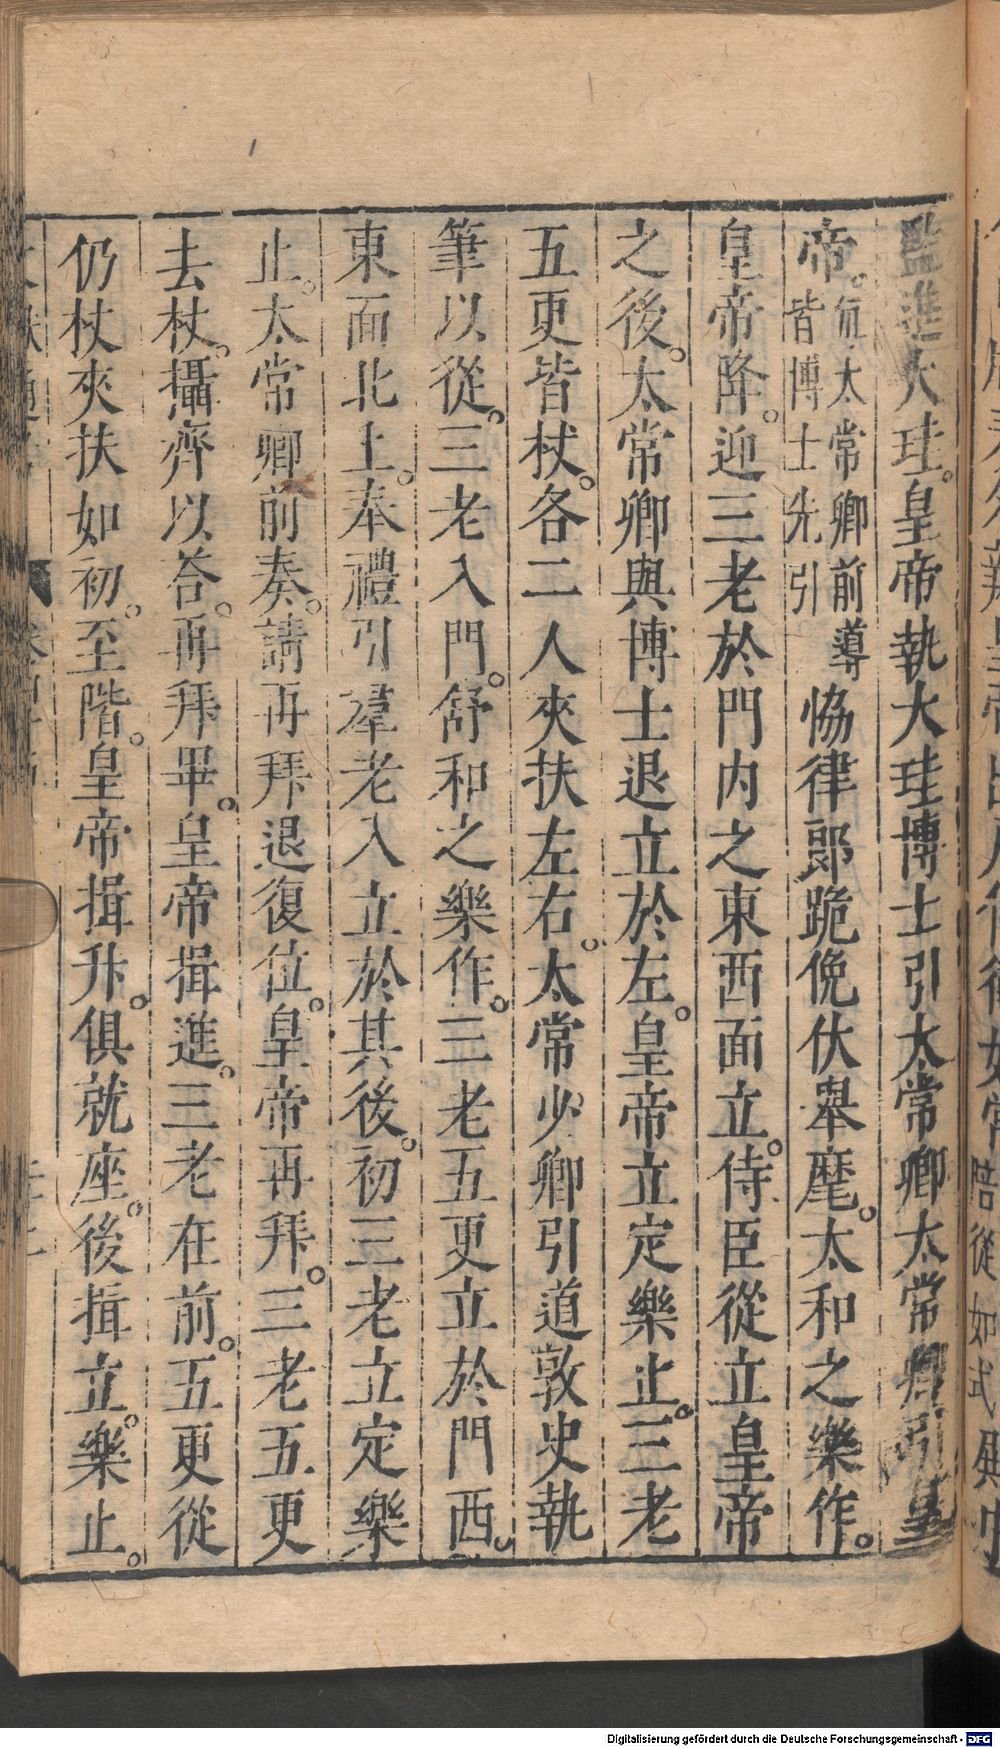 監進大珪。皇帝執大珪博士引太常卿太常卿引皇
帝。凡太常卿前導皆博士先引協律郎跪俛伏舉麾。太和之樂作。
皇帝降。迎三老於門内之東西面立。侍臣從立皇帝
之後。太常卿與博士退立於左。皇帝立定樂止。三老
五更皆杖。各二人夾扶左右。太常少卿引道敦史執
筆以從。三老入門。舒和之樂作。三老五更立於門西。
東面北上。奉禮引羣老入立於其後。初三老立定樂
止。太常卿前奏。請再拜退復位。皇帝再拜。三老五更
去杖。攝齊以荅。再拜畢。皇帝揖進。三老在前。五更從
仍杖夾扶如初。至階。皇帝揖升。俱就座。後揖立。樂止。
Digitalisierung gefördert durch die Deutsche Forschungsgemeinschaft - DFG